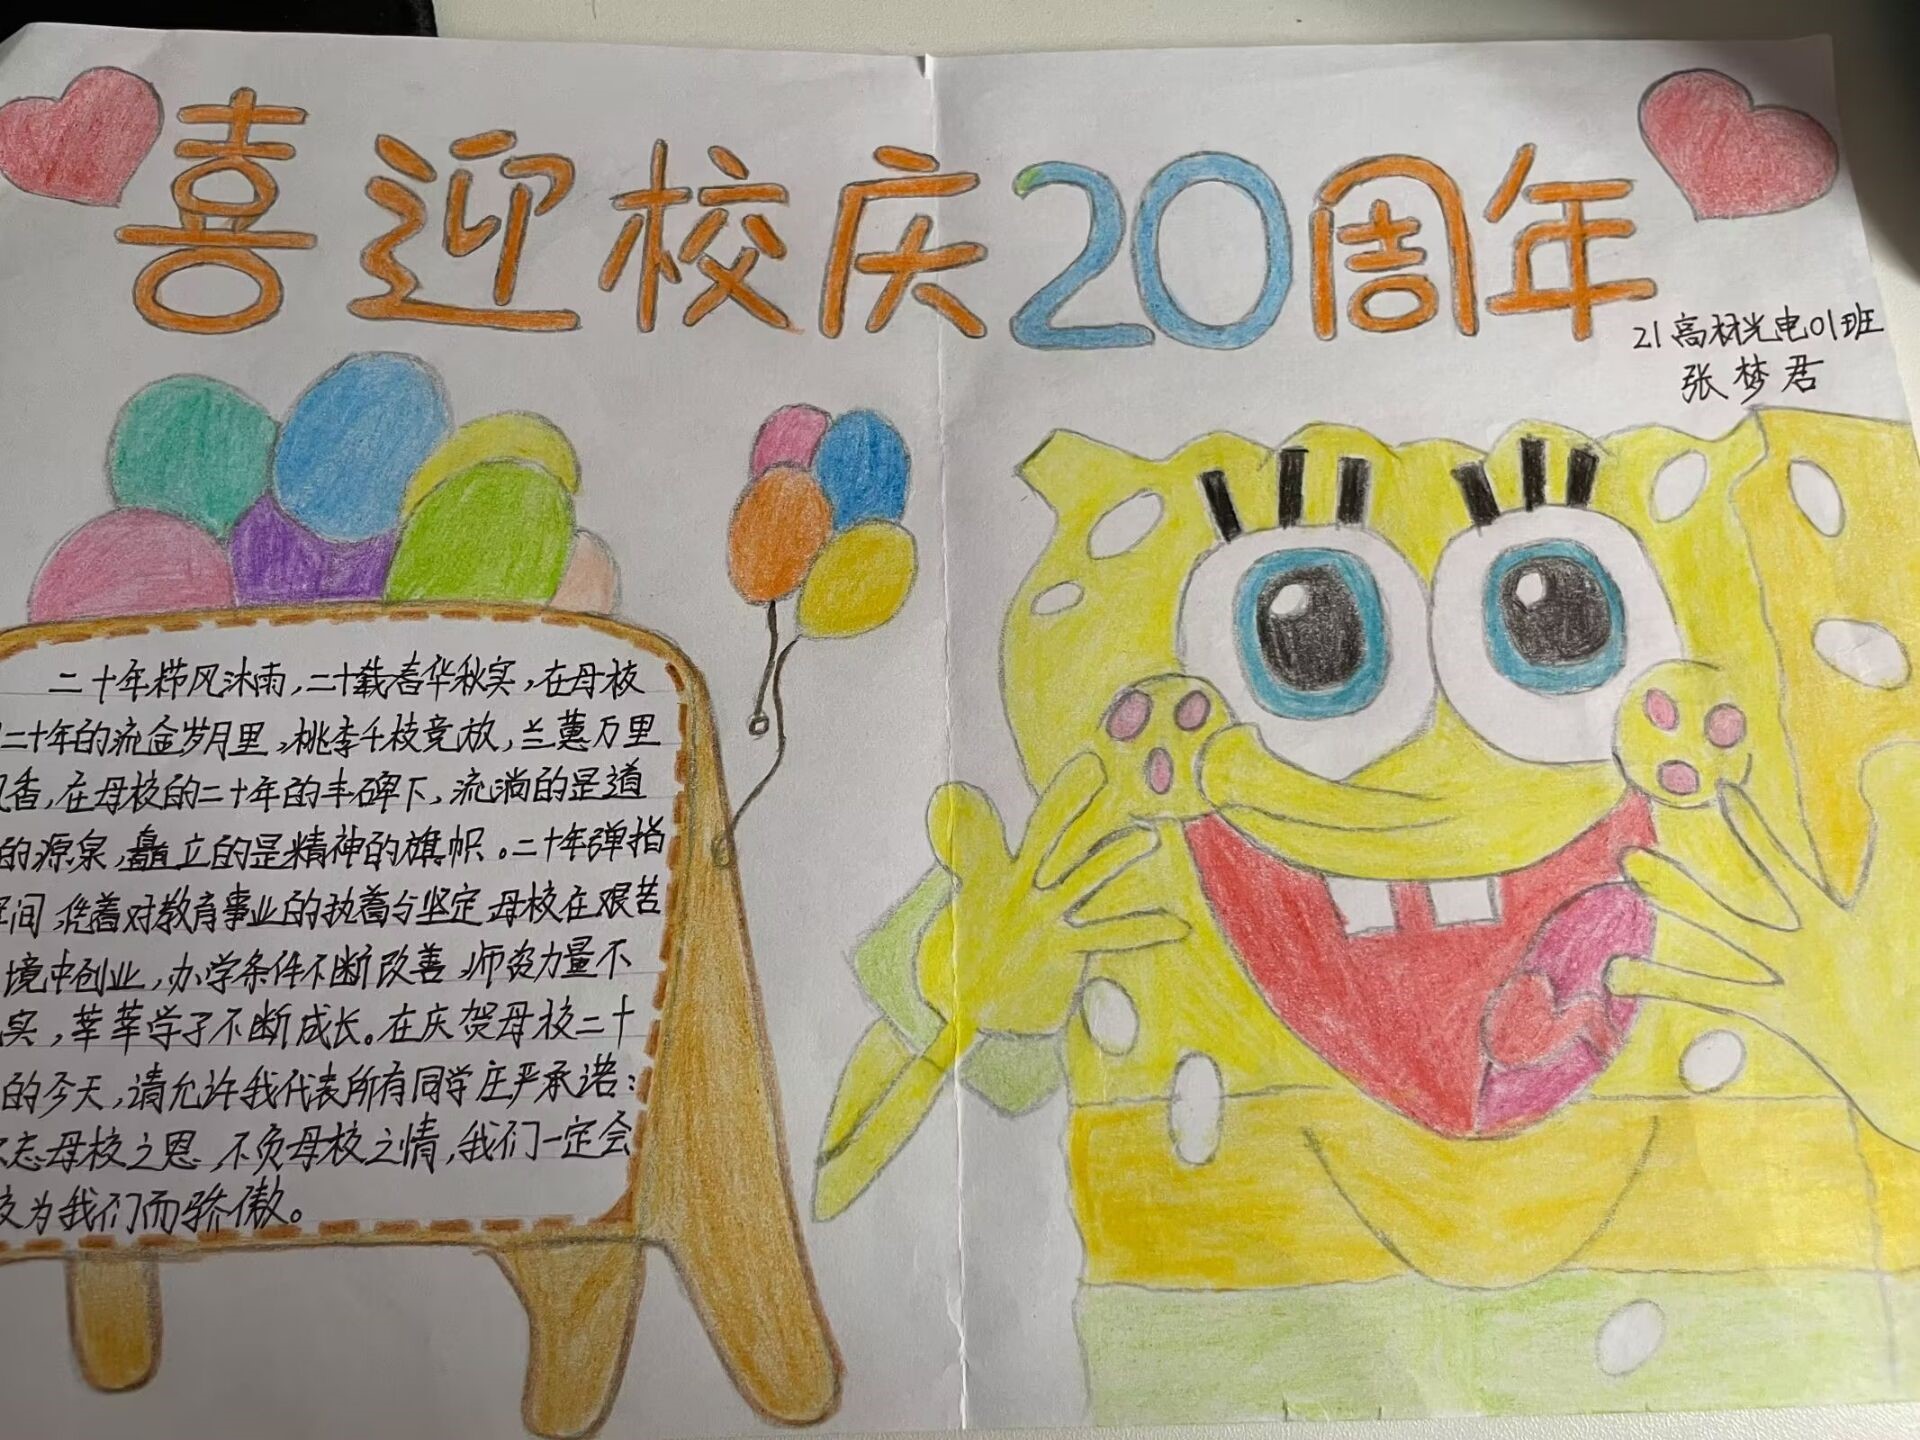 喜迎校庆20周年
21高材光电01班
张梦君
二十年栉风沐雨，二十载春华秋实，在母校
二十年的流金岁月里，桃李千枝竞放，兰蕙万里
香，在母校的二十年的丰碑下，流淌的是道
的源泉，矗立的是精神的旗帜。二十年弹指
间，凭着对教育事业的执着与坚定，母校在艰苦
境中创业，办学条件不断改善，师资力量不
实，莘莘学子不断成长。在庆贺母校二十
的今天，请允许我代表所有同学庄严承诺：
忘母校之恩，不负母校之情，我们一定会
为我们而骄傲。